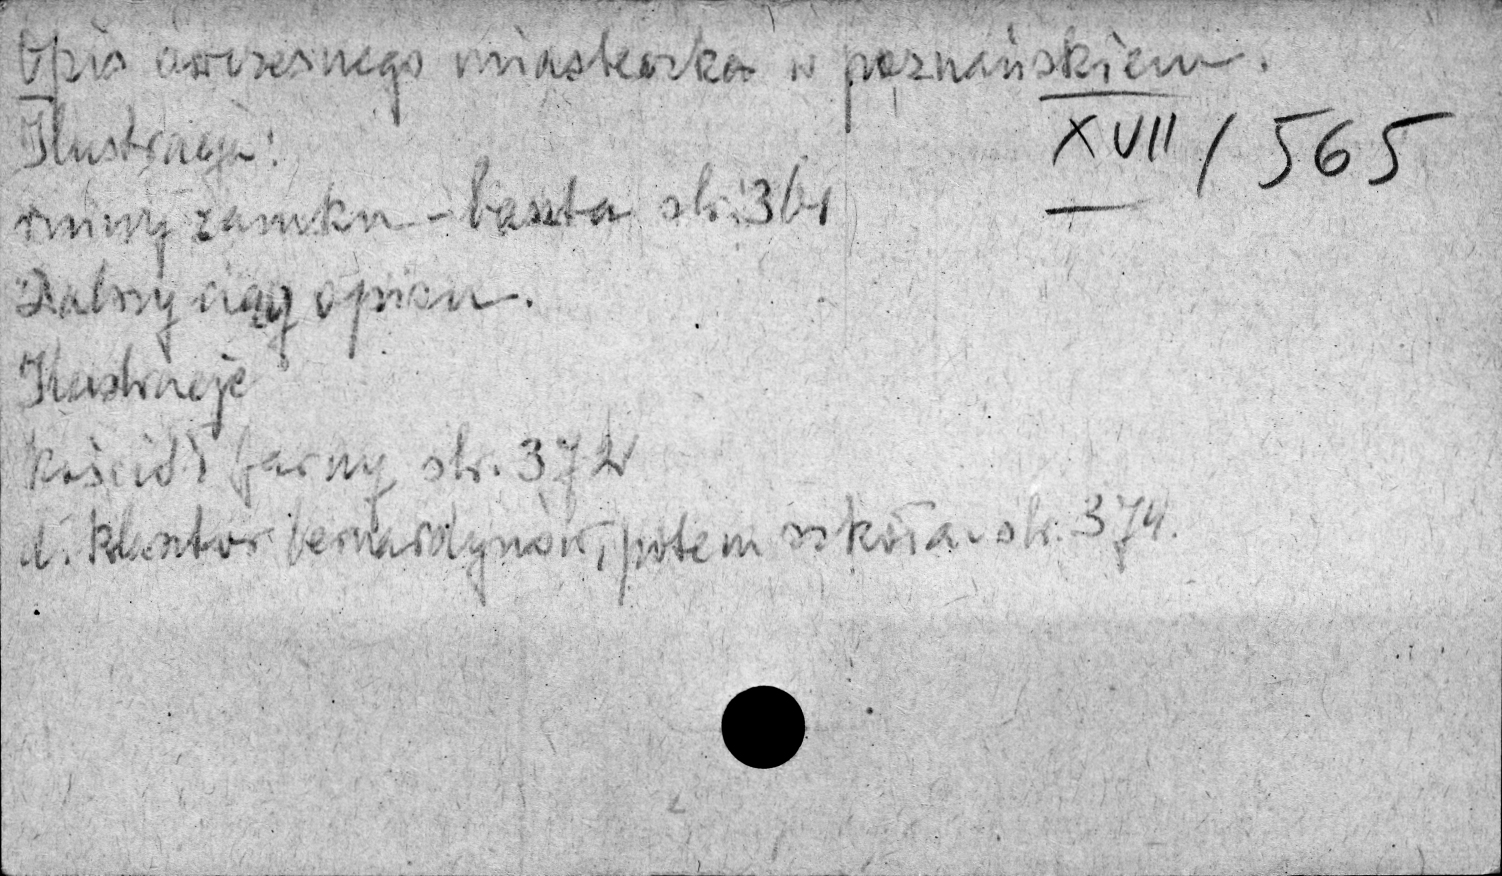 Opis ówczesnego miasteczka w poznańskiem.
XVII / 565
Ilustracja:
ruiny zamku - baszta str. 361
Dalszy ciąg opisu.
Ilustracje
kościół farny str. 372
d. klasztor bernardynów, potem szkoła str. 374.